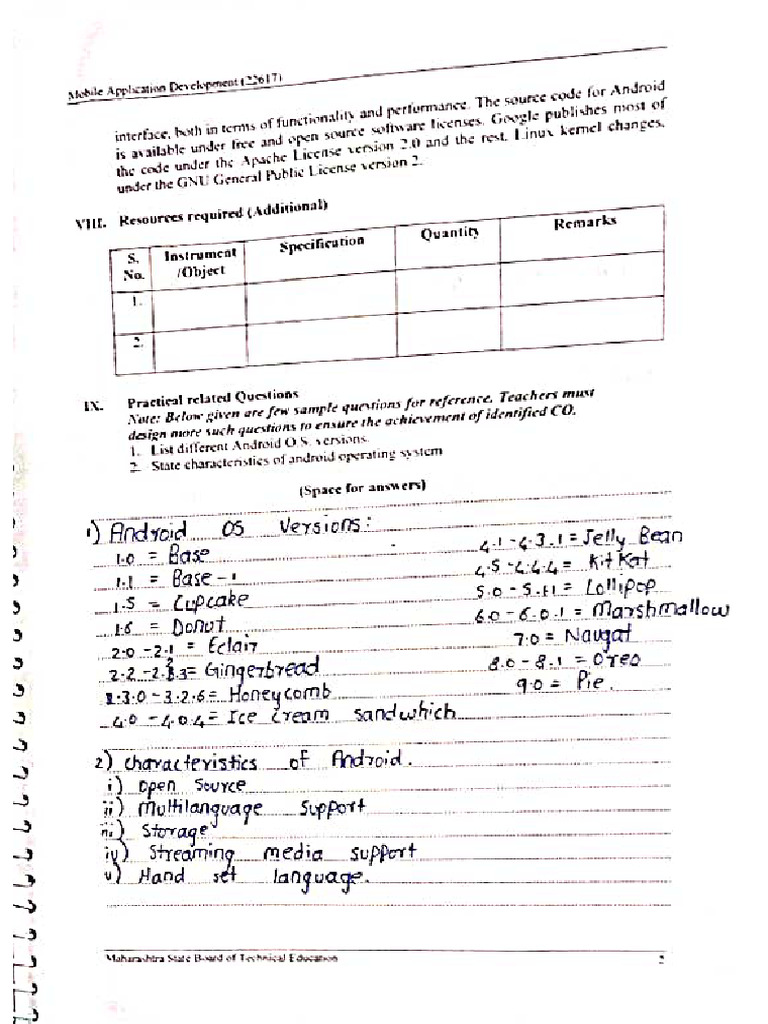 Mobile Application Development (22617)
interface, both in terms of functionality and performance. The source code for Android
is available under free and open source software licenses. Google publishes most of
the code under the Apache License version 2.0 and the rest, Linux kernel changes,
under the GNU General Public License version 2.
VIII. Resources required (Additional)
S. No. Instrument /Object Specification Quantity Remarks
1.
2.
IX. Practical related Questions
Note: Below given are few sample questions for reference. Teachers must
design more such questions to ensure the achievement of identified CO.
1. List different Android O.S. versions.
2. State characteristics of android operating system
(Space for answers)
1) Android OS Versions:
1.0 = Base
1.1 = Base-1
1.5 = Cupcake
1.6 = Donut
2.0 - 2.1 = Eclair
2.2 - 2.3.3 = Gingerbread
3.0 - 3.2.6 = Honeycomb
4.0 - 4.0.4 = Ice Cream sandwhich
4.1 - 4.3.1 = Jelly Bean
4.5 - 4.4.4 = KitKat
5.0 - 5.1.1 = Lollipop
6.0 - 6.0.1 = Marshmallow
7.0 = Naugat
8.0 - 8.1 = Oreo
9.0 = Pie.
2) Characteristics of Android.
i) Open Source
ii) Multilanguage Support
iii) Storage
iv) Streaming media support
v) Hand set language.
Maharashtra State Board of Technical Education